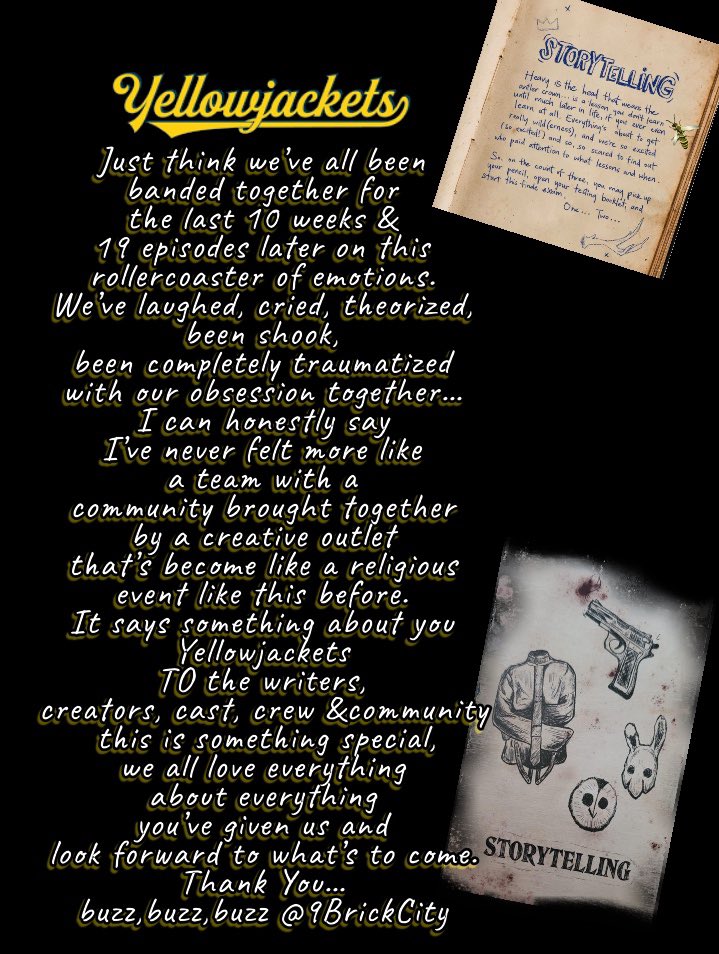 Yellowjackets
Just think we've all been
banded together for
the last 10 weeks &
19 episodes later on this
rollercoaster of emotions.
We've laughed, cried, theorized,
been shook,
been completely traumatized
with our obsession together...
I can honestly say
I've never felt more like
a team with a
community brought together
by a creative outlet
that's become like a religious
event like this before.
It says something about you
Yellowjackets
TO the writers,
creators, cast, crew &community
this is something special,
we all love everything
about everything
you've given us and
look forward to what's to come.
Thank You...
buzz,buzz,buzz @9BrickCity
STORYTELLING
Heavy is the head that wears the
antler crown... is a lesson you don't learn
until much later in life, if you ever even
learn at all. Everything's about to get
really wild(erness), and we're so excited
(so excited!) and so, so scared to find out
who paid attention to what lessons and when.
So, on the count of three, you may pick up
your pencil, open your testing booklet, and
start this finale exam.
One... Two...
STORYTELLING